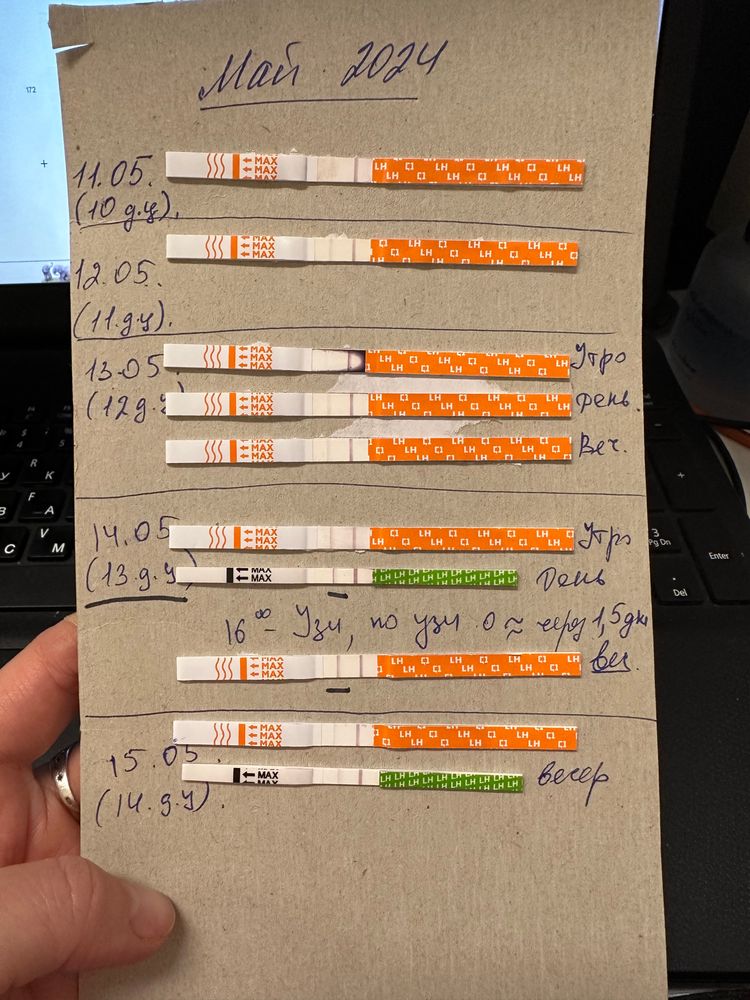 172
Май 2024
11.05.
(10 д.ц).
← MAX
← MAX
← MAX
LH LH LH LH LH LH LH LH
12.05.
(11.д.ц).
← MAX
← MAX
← MAX
LH LH LH LH LH LH LH LH
13.05
(12 д.ц)
← MAX
← MAX
← MAX
LH LH LH LH LH LH LH LH
Утро
← MAX
← MAX
← MAX
LH LH LH LH LH LH LH LH
День.
← MAX
← MAX
← MAX
LH LH LH LH LH LH LH LH
Веч.
14.05
(13.д.ц)
← MAX
← MAX
← MAX
LH LH LH LH LH LH LH LH
Утро
← MAX
← MAX
LH LH LH LH LH LH LH LH
День
16⁰⁰ - Узи, по узи О ≈ через 1,5 дня
← MAX
← MAX
← MAX
LH LH LH LH LH LH LH LH
веч.
15.05.
(14.д.ц).
← MAX
← MAX
← MAX
LH LH LH LH LH LH LH LH
← MAX
← MAX
LH LH LH LH LH LH LH LH
вечер
3
Pg Dn
Enter
Del
K
R
F
А
V
М
C